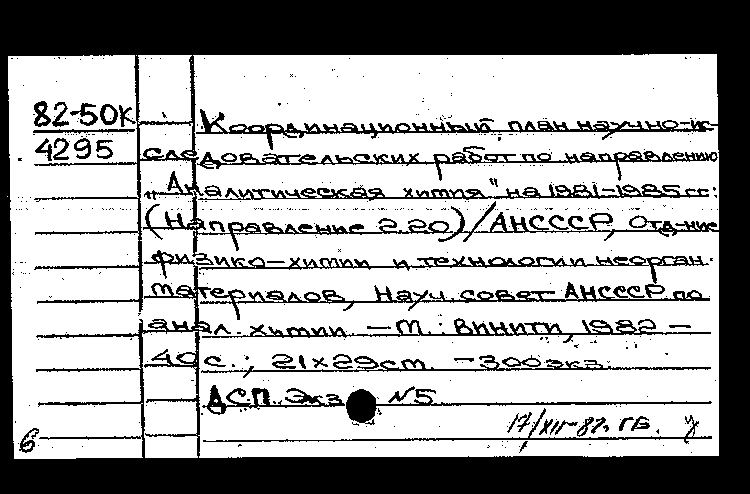 82-50К
4295
Координационный план научно-ис-
следовательских работ по направлению
„Аналитическая химия" на 1981-1985 гг:
(Направление 2.20) / АН СССР, Отд-ние
физико-химии и технологии неорган.
материалов, Науч. совет АН СССР по
анал. химии. - М.: ВИНИТИ, 1982 -
40 с.; 21×29 cm. - 300 экз.
ДСП. Экз. №5
17/XII-82г. ГБ.
6